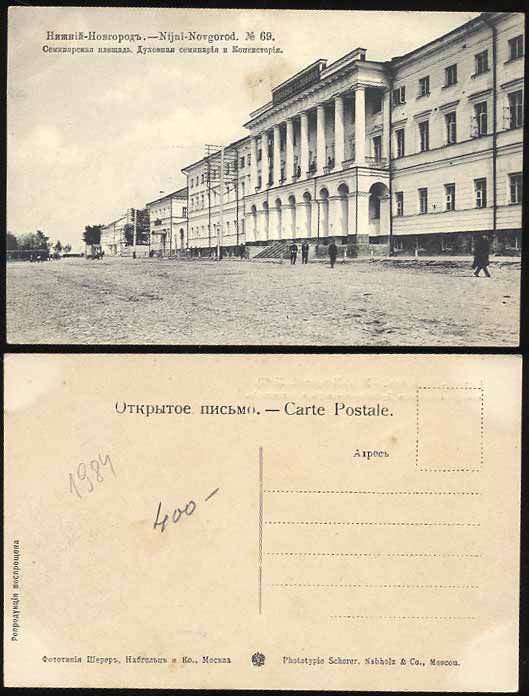 Нижній-Новгородъ.—Nijni-Novgorod. № 69.
Семинарская площадь. Духовная семинарія и Консисторія.
Открытое письмо. — Carte Postale.
Адресъ
1984
400 –
Репродукція воспрещена
Фототипія Шереръ, Набгольцъ и Ко., Москва
Phototypie Scherer, Nabholz & Co., Moscou.